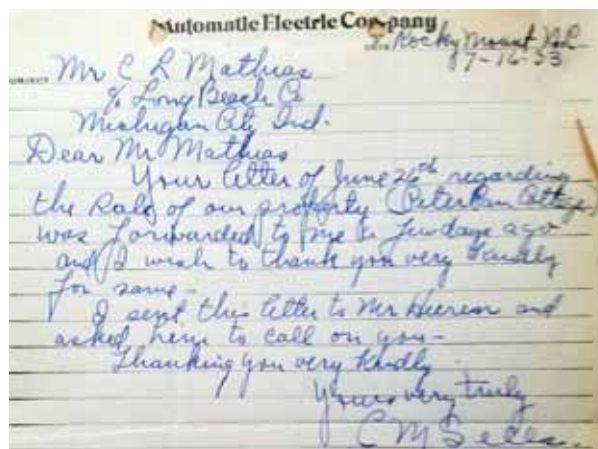 Automatic Electric Company
Rocky Mount N.C.
7-16-23
SUBJECT Mr C L Mathias
% Long Beach Co
Michigan City Ind.
Dear Mr Mathias
Your letter of June 26th regarding
the Sale of our property (Peter Pan Cottage)
was forwarded to me a few days ago
and I wish to thank you very kindly
for same -
I sent this letter to Mr and
asked him to call on you -
Thanking you very kindly
Yours very truly
C M